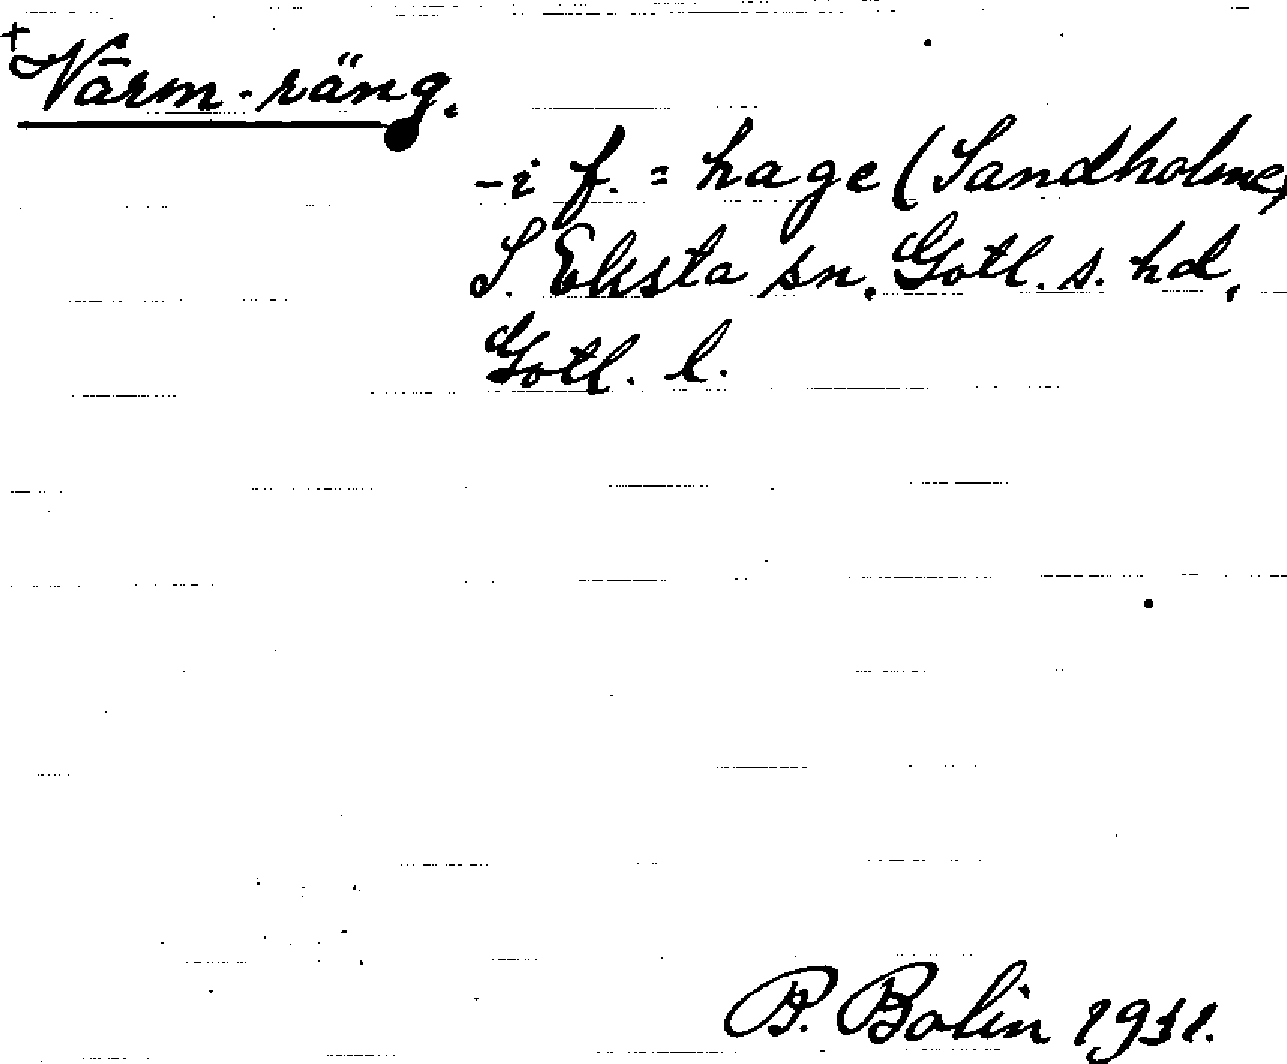 + Värm-räng.
-i f. = hage (Sandholme)
S. Eksta sn. Gotl. s. hd,
Gotl. l.
P. Bolin 1931.